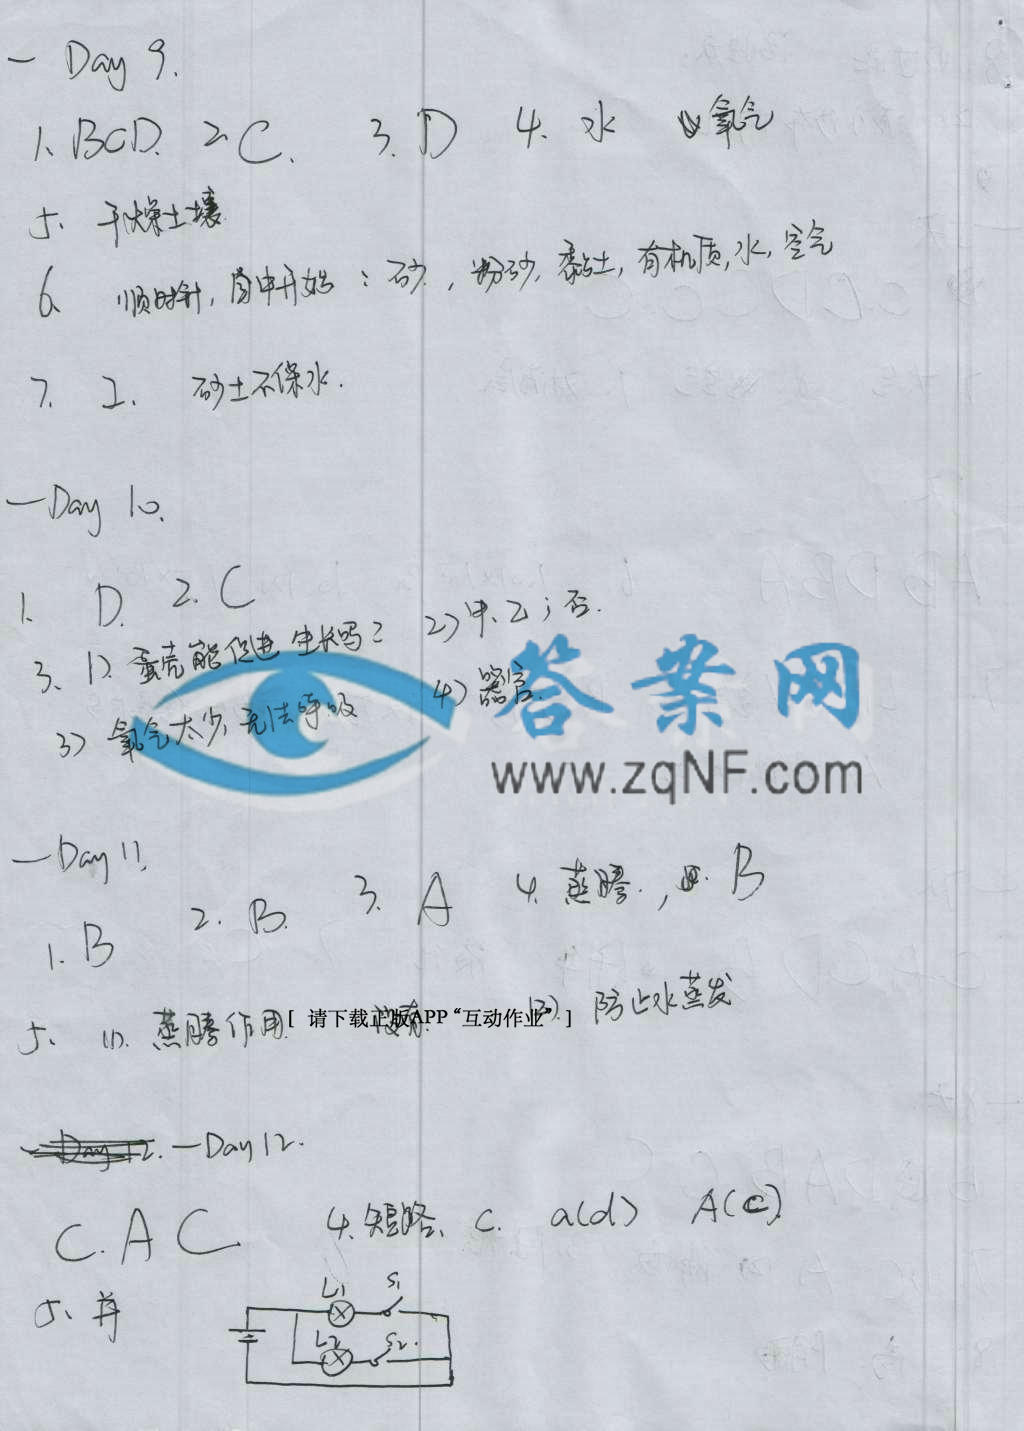 一 Day 9.
1. BCD. 2. C. 3. D 4. 水 氧气
5、干燥土壤
6、顺时针，自中开始：砂，粉砂，黏土，有机质，水，空气
7. 2. 砂土不保水.
一 Day 10.
1. D. 2. C
3、1）蛋壳能促进生长吗？ 2）甲、乙；否.
3）氧气太少，无法呼吸 4）器官.
答案网
www.zqNF.com
一 Day 11.
1. B 2. B. 3. A 4. 蒸腾.， B
5、(1). 蒸腾作用. (3). 防止水蒸发
[ 请下载正版APP“互动作业” ]
一 Day 12. 一 Day 12.
C. A C 4. 短路、 c. a(d) A(C).
5、并
L1 S1
L2 S2.